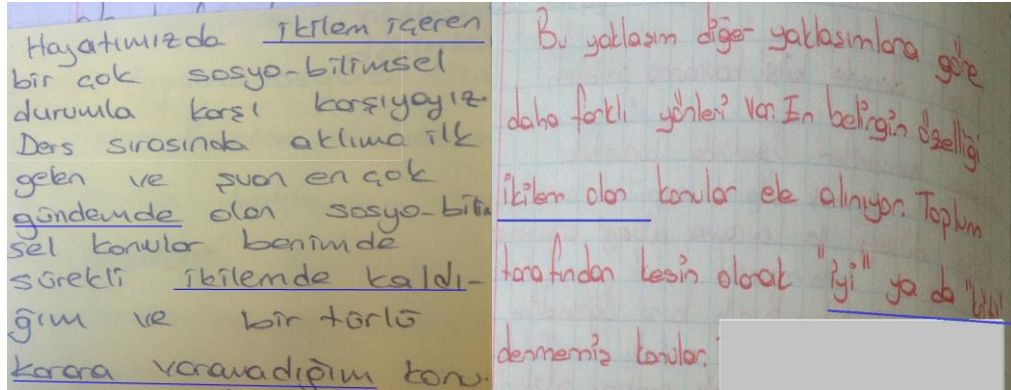 Hayatımızda ikilem içeren
bir çok sosyo-bilimsel
durumla karşı karşıyayız.
Ders sırasında aklıma ilk
gelen ve şuan en çok
gündemde olan sosyo-bilim
sel konular benimde
sürekli ikilemde kaldı-
ğım ve bir türlü
karara varamadığım konu.
Bu yaklaşım diğer yaklaşımlara göre
daha farklı yönleri var. En belirgin özelliği
ikilem olan konular ele alınıyor. Toplum
tarafından kesin olarak "iyi" ya da "kötü"
denmemiş konular.